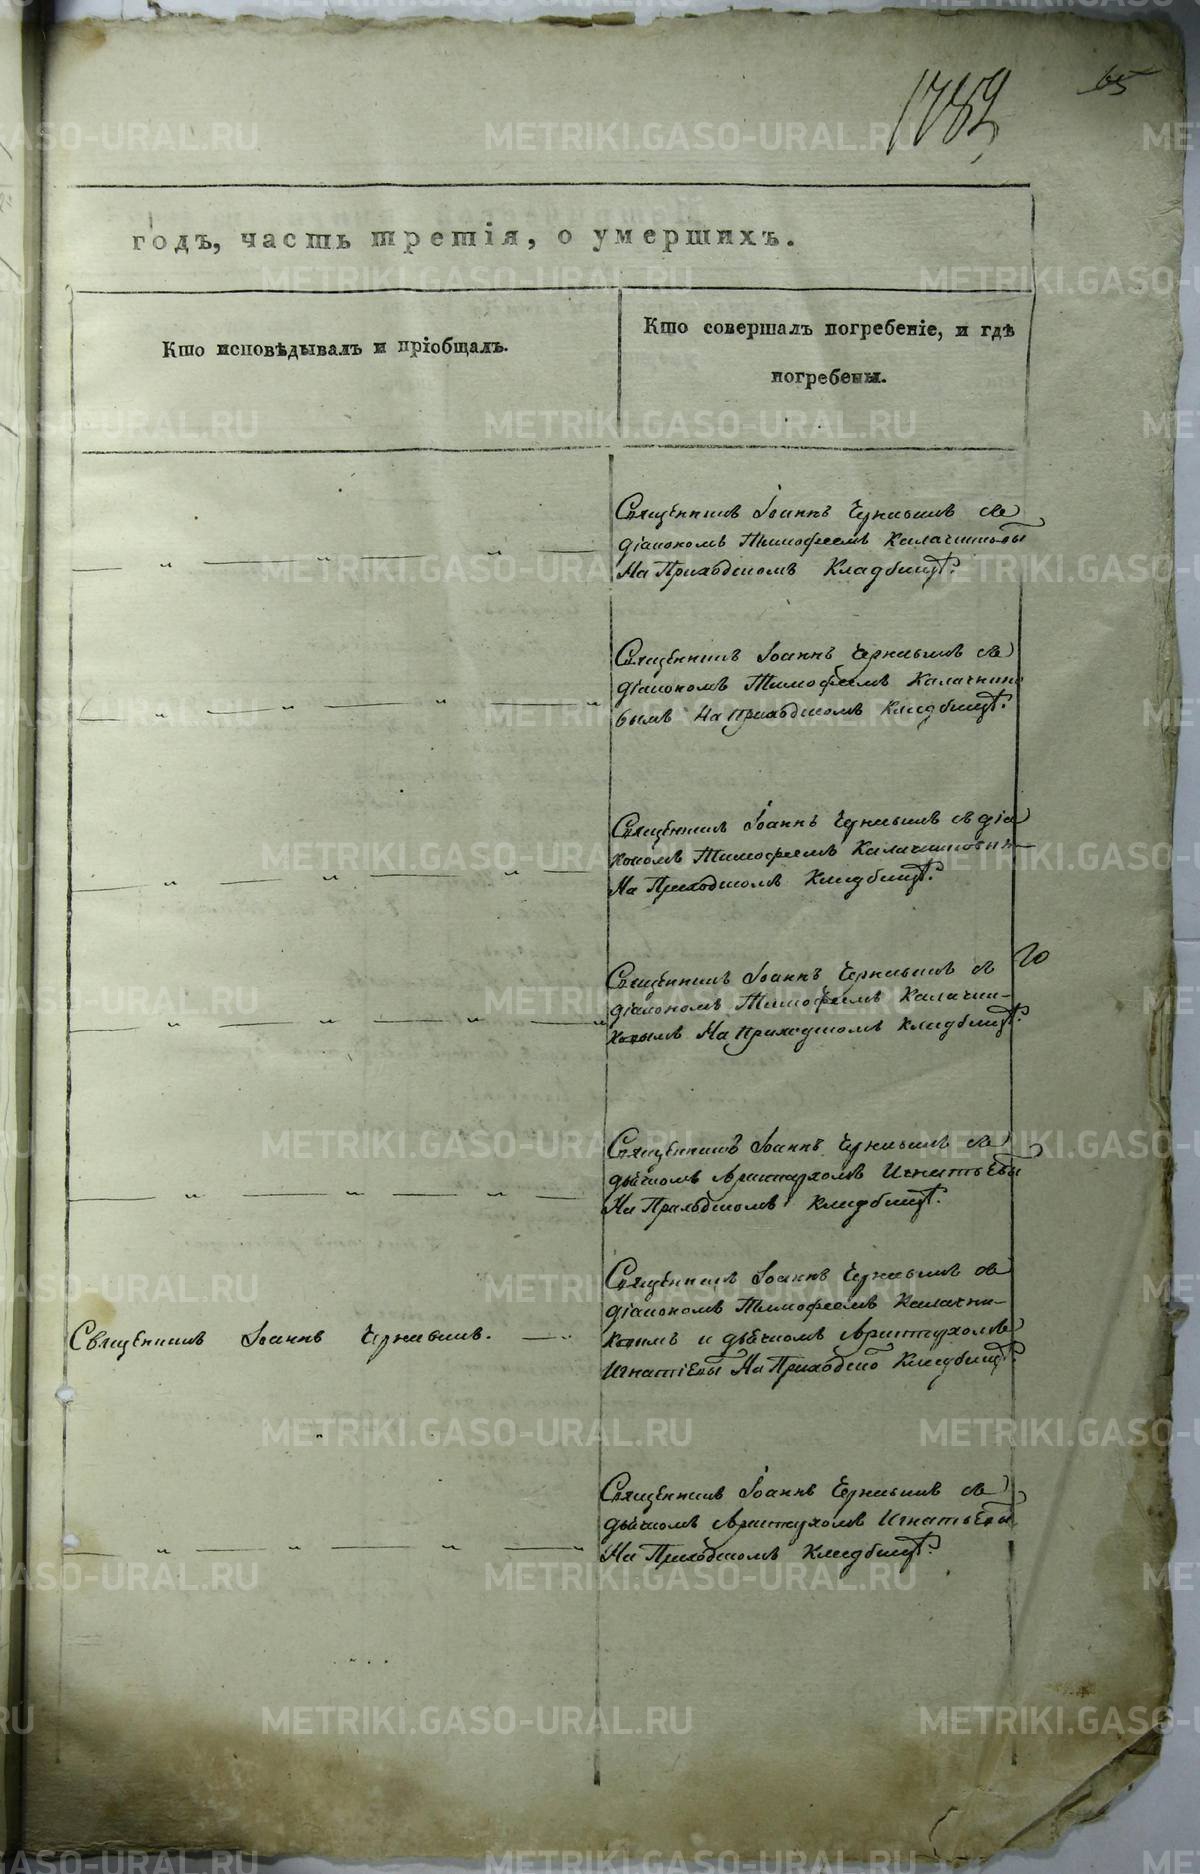 1782
65
годъ, часть третія, о умершихъ.
Кто исповѣдывалъ и пріобщалъ.
Кто совершалъ погребеніе, и гдѣ
погребены.
Священникъ Іоаннъ Чернавинъ съ
діакономъ Тимофеемъ Калачниковы
На Приходскомъ Кладбищѣ.
Священникъ Іоаннъ Чернавинъ съ
діакономъ Тимофеемъ Калачнико
вымъ На Приходскомъ Кладбищѣ.
Священникъ Іоаннъ Чернавинъ съ діа
кономъ Тимофеемъ Калачниковы
На Приходскомъ Кладбищѣ.
Священникъ Іоаннъ Чернавинъ съ
діакономъ Тимофеемъ Калачни-
ковымъ На Приходскомъ Кладбищѣ.
Священникъ Іоаннъ Чернавинъ съ
дьячкомъ Аристархомъ Игнатьевы
На Приходскомъ Кладбищѣ.
Священникъ Іоаннъ Чернавинъ.
Священникъ Іоаннъ Чернавинъ съ
діакономъ Тимофеемъ Калачни-
ковымъ и дьячкомъ Аристархомъ
Игнатіевы На Приходско Кладбищѣ.
Священникъ Іоаннъ Чернавинъ съ
дьячкомъ Аристархомъ Игнатьевы
На Приходскомъ Кладбищѣ.
METRIKI.GASO-URAL.RU